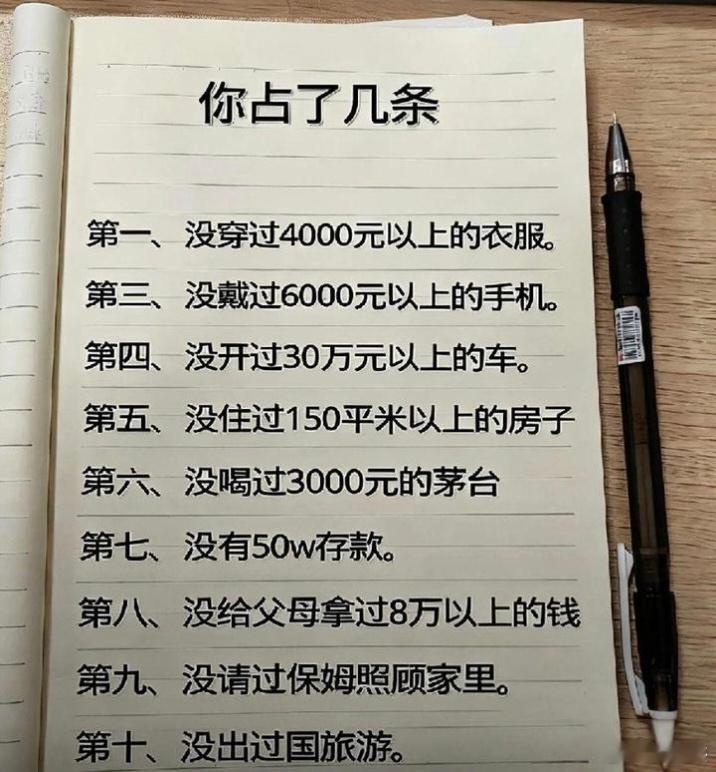 你占了几条
第一、没穿过4000元以上的衣服。
第三、没戴过6000元以上的手机。
第四、没开过30万元以上的车。
第五、没住过150平米以上的房子
第六、没喝过3000元的茅台
第七、没有50w存款。
第八、没给父母拿过8万以上的钱
第九、没请过保姆照顾家里。
第十、没出过国旅游。